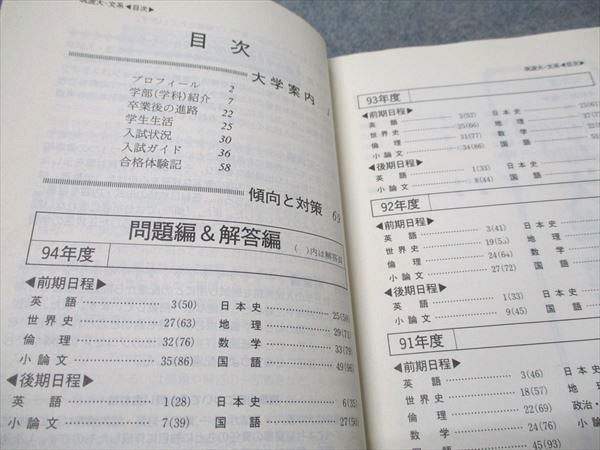 筑波大-文系◀目次▶
目次
大学案内 1
プロフィール 2
学部(学科)紹介 7
卒業後の進路 22
学生生活 25
入試状況 30
入試ガイド 36
合格体験記 58
傾向と対策 69
問題編&解答編
94年度 ( )内は解答頁
◀前期日程▶
英語 3(50) 日本史 25(
世界史 27(63) 地理 29(
倫理 32(76) 数学 33(
小論文 35(86) 国語 49(
◀後期日程▶
英語 1(28) 日本史 6(
小論文 7(39) 国語 27(
筑波大-文系◀目次▶
93年度
◀前期日程▶
英語 3(52) 日本史
世界史 25(66) 地理
倫理 31(77) 数学
小論文 34(86) 国語
◀後期日程▶
英語 1(33) 日本史
小論文 8(44) 国語
92年度
◀前期日程▶
英語 3(41) 日本史
世界史 19( 地理
倫理 24(64) 数学
小論文 27(72) 国語
◀後期日程▶
英語 1(33) 日
小論文 9(45) 国
91年度
◀前期日程▶
英語 3(46) 日
世界史 18(57) 地
倫理 22(69) 政治・
数学 24(76) 小
45(93)